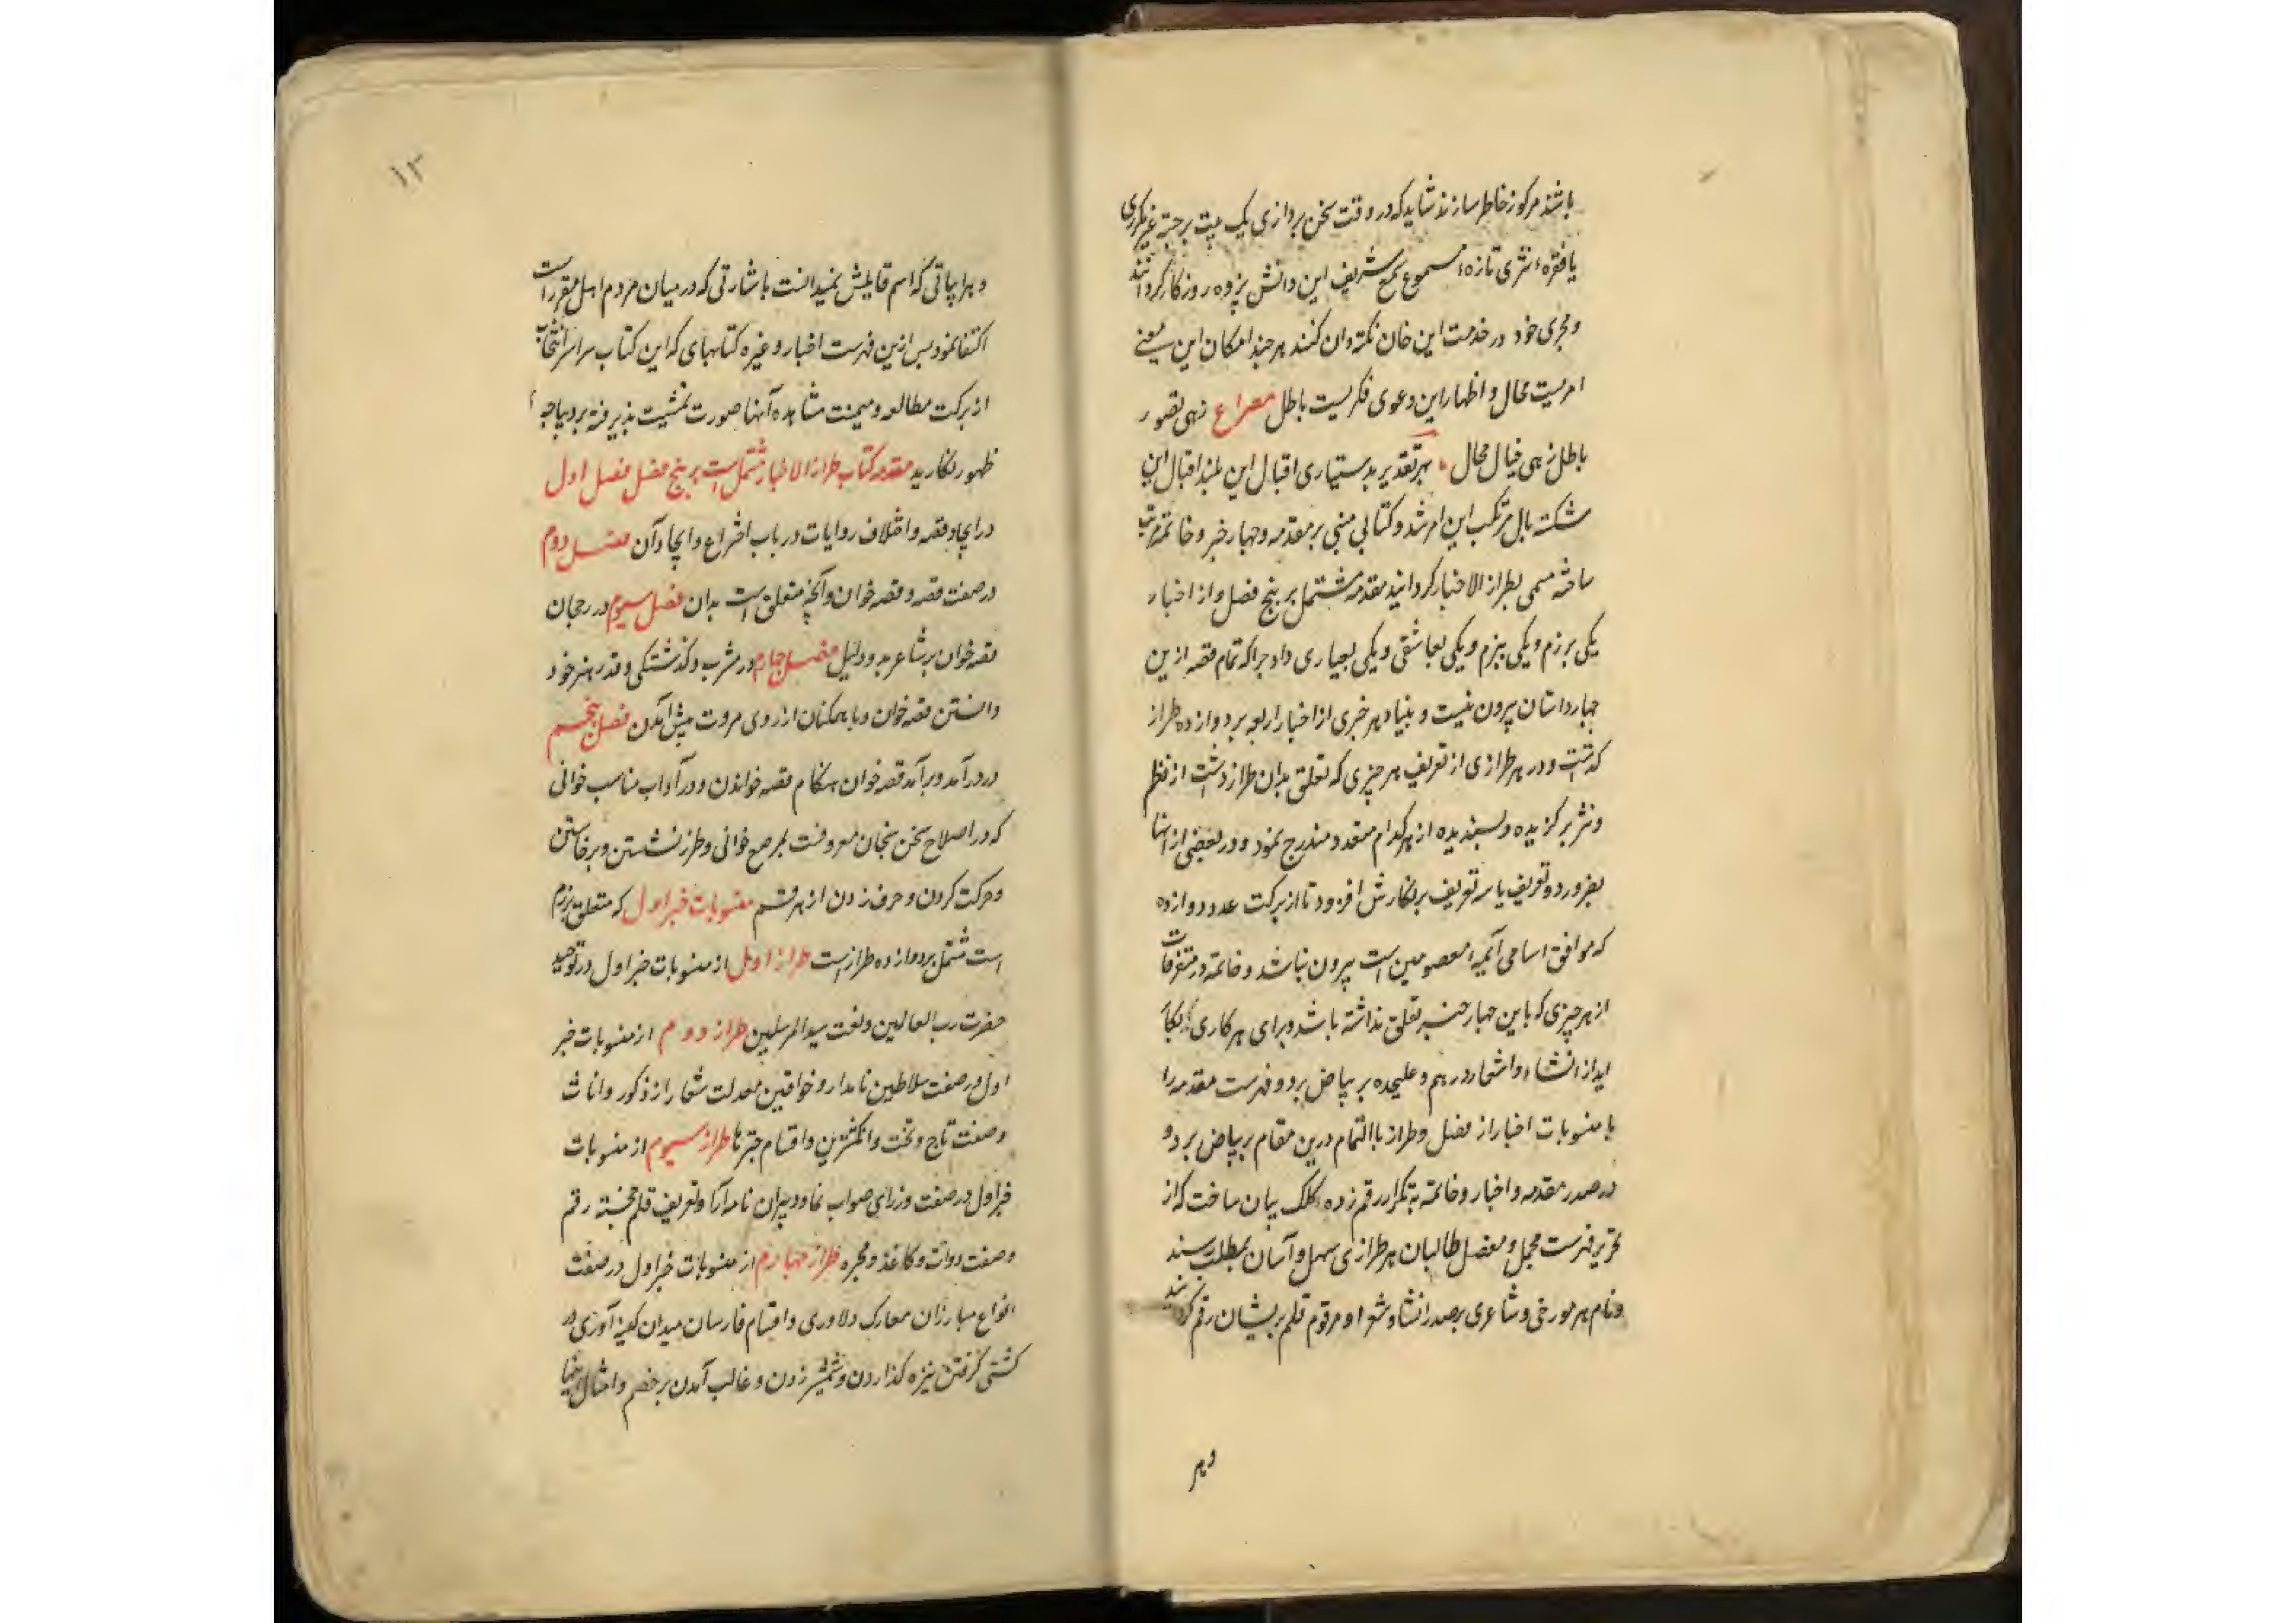 باشد مرکوز خاطر سازند شاید که در وقت سخن پردازی یک بیت برجسته غیر مکرری
یا فقره نثری تازه مسموع سمع شریف این دانش پژوه روزکار کردانند
و مجری خود در خدمت این خان نکته دان کنند هر چند امکان این معنی
امریست محال و اظهار این دعوی فکریست باطل مصراع زهی تصور
باطل زهی خیال محال بهر تقدیر بدستیاری اقبال این بلند اقبال این
شکسته بال مرتکب این امر شد و کتابی مبنی بر مقدمه و چهار خبر و خاتمه مرتب
ساخته مسمی بطراز الاخبار کردانید مقدمه مشتمل بر پنج فصل و از اخبار
یکی برزم و یکی ببزم و یکی بعاشقی و یکی بعیاری داد چرا که تمام قصه ازین
چهار داستان بیرون نیست و بنیاد هر خبری از اخبار اربعه بر دوازده طراز
کذاشت و در هر طرازی از تعریف هر چیزی که تعلق بدان طراز داشت از نظم
و نثر برکزیده و پسندیده از هر کدام متعدد مندرج نمود و در بعضی از آنها
بضرور دو تعریف یا سه تعریف بر نکارش افزود تا از برکت عدد دوازده
که موافق اسامی آئمه معصومین است بیرون نباشد و خاتمه در متفرقات
از هر چیزی که باین چهار خبر تعلق نداشته باشد و برای هر کاری بکار
آید از انشاء و اشعار در هم و علیحده بر بیاض برد و فهرست مقدمه را
با منسوبات اخبار از فصل و طراز بالتمام درین مقام بر بیاض برد و
در صدر مقدمه و اخبار و خاتمه بتکرار رقم زده کلک بیان ساخت که از
تحریر فهرست مجمل و مفصل طالبان هر طرازی سهل و آسان بمطلب رسند
و نام هر مورخی و شاعری بر صدر انشا و شعر او مرقوم قلم پریشان رقم کردانید
و هر
۱۳
و بر ابیاتی که اسم قایلش نمیدانست باشارتی که در میان مردم اهل مقرر است
اکتفا نمود پس ازین فهرست اخبار و غیره کتابهای که این کتاب سراسر انتخاب
از برکت مطالعه و میمنت مشاهده آنها صورت تمشیت پذیرفته بر دیباجه
ظهور نکارید مقدمه کتاب طراز الاخبار مشتمل است بر پنج فصل فصل اول
در ایجاد قصه و اختلاف روایات در باب اختراع و ایجاد آن فصل دوم
در صفت قصه و قصه خوان و آنچه متعلق است بدان فصل سیوم در رجحان
قصه خوان بر شاعر بدو دلیل فصل چهارم در مشرب و کذشتکی و قدر هنر خود
دانستن قصه خوان و با همکنان از روی مروت پیش آمدن فصل پنجم
در درآمد و برآمد قصه خوان هنکام قصه خواندن و در آداب مناسب خوانی
که در اصلاح سخن سنجان معروفست بمرصع خوانی و طرز نشستن و برخاستن
و حرکت کردن و حرف زدن از هر قسم منسوبات خبر اول که متعلق برزم
است مشتمل بر دوازده طراز است طراز اول از منسوبات خبر اول در توحید
حضرت رب العالمین و نعت سید المرسلین طراز دوم از منسوبات خبر
اول در صفت سلاطین نامدار و خواقین معدلت شعار از ذکور و اناث
و صفت تاج و تخت و انکشترین و اقسام چترها طراز سیوم از منسوبات
خبر اول در صفت وزرای صواب نما و دبیران نامه آرا و تعریف قلم خجسته رقم
و صفت دوات و کاغذ و محبره طراز چهارم از منسوبات خبر اول در صفت
انواع مبارزان معارک دلاوری و اقسام فارسان میدان کینه آوری در
کشتی کرفتن نیزه کذاردن و شمشیر زدن و غالب آمدن بر خصم و امثال اینها